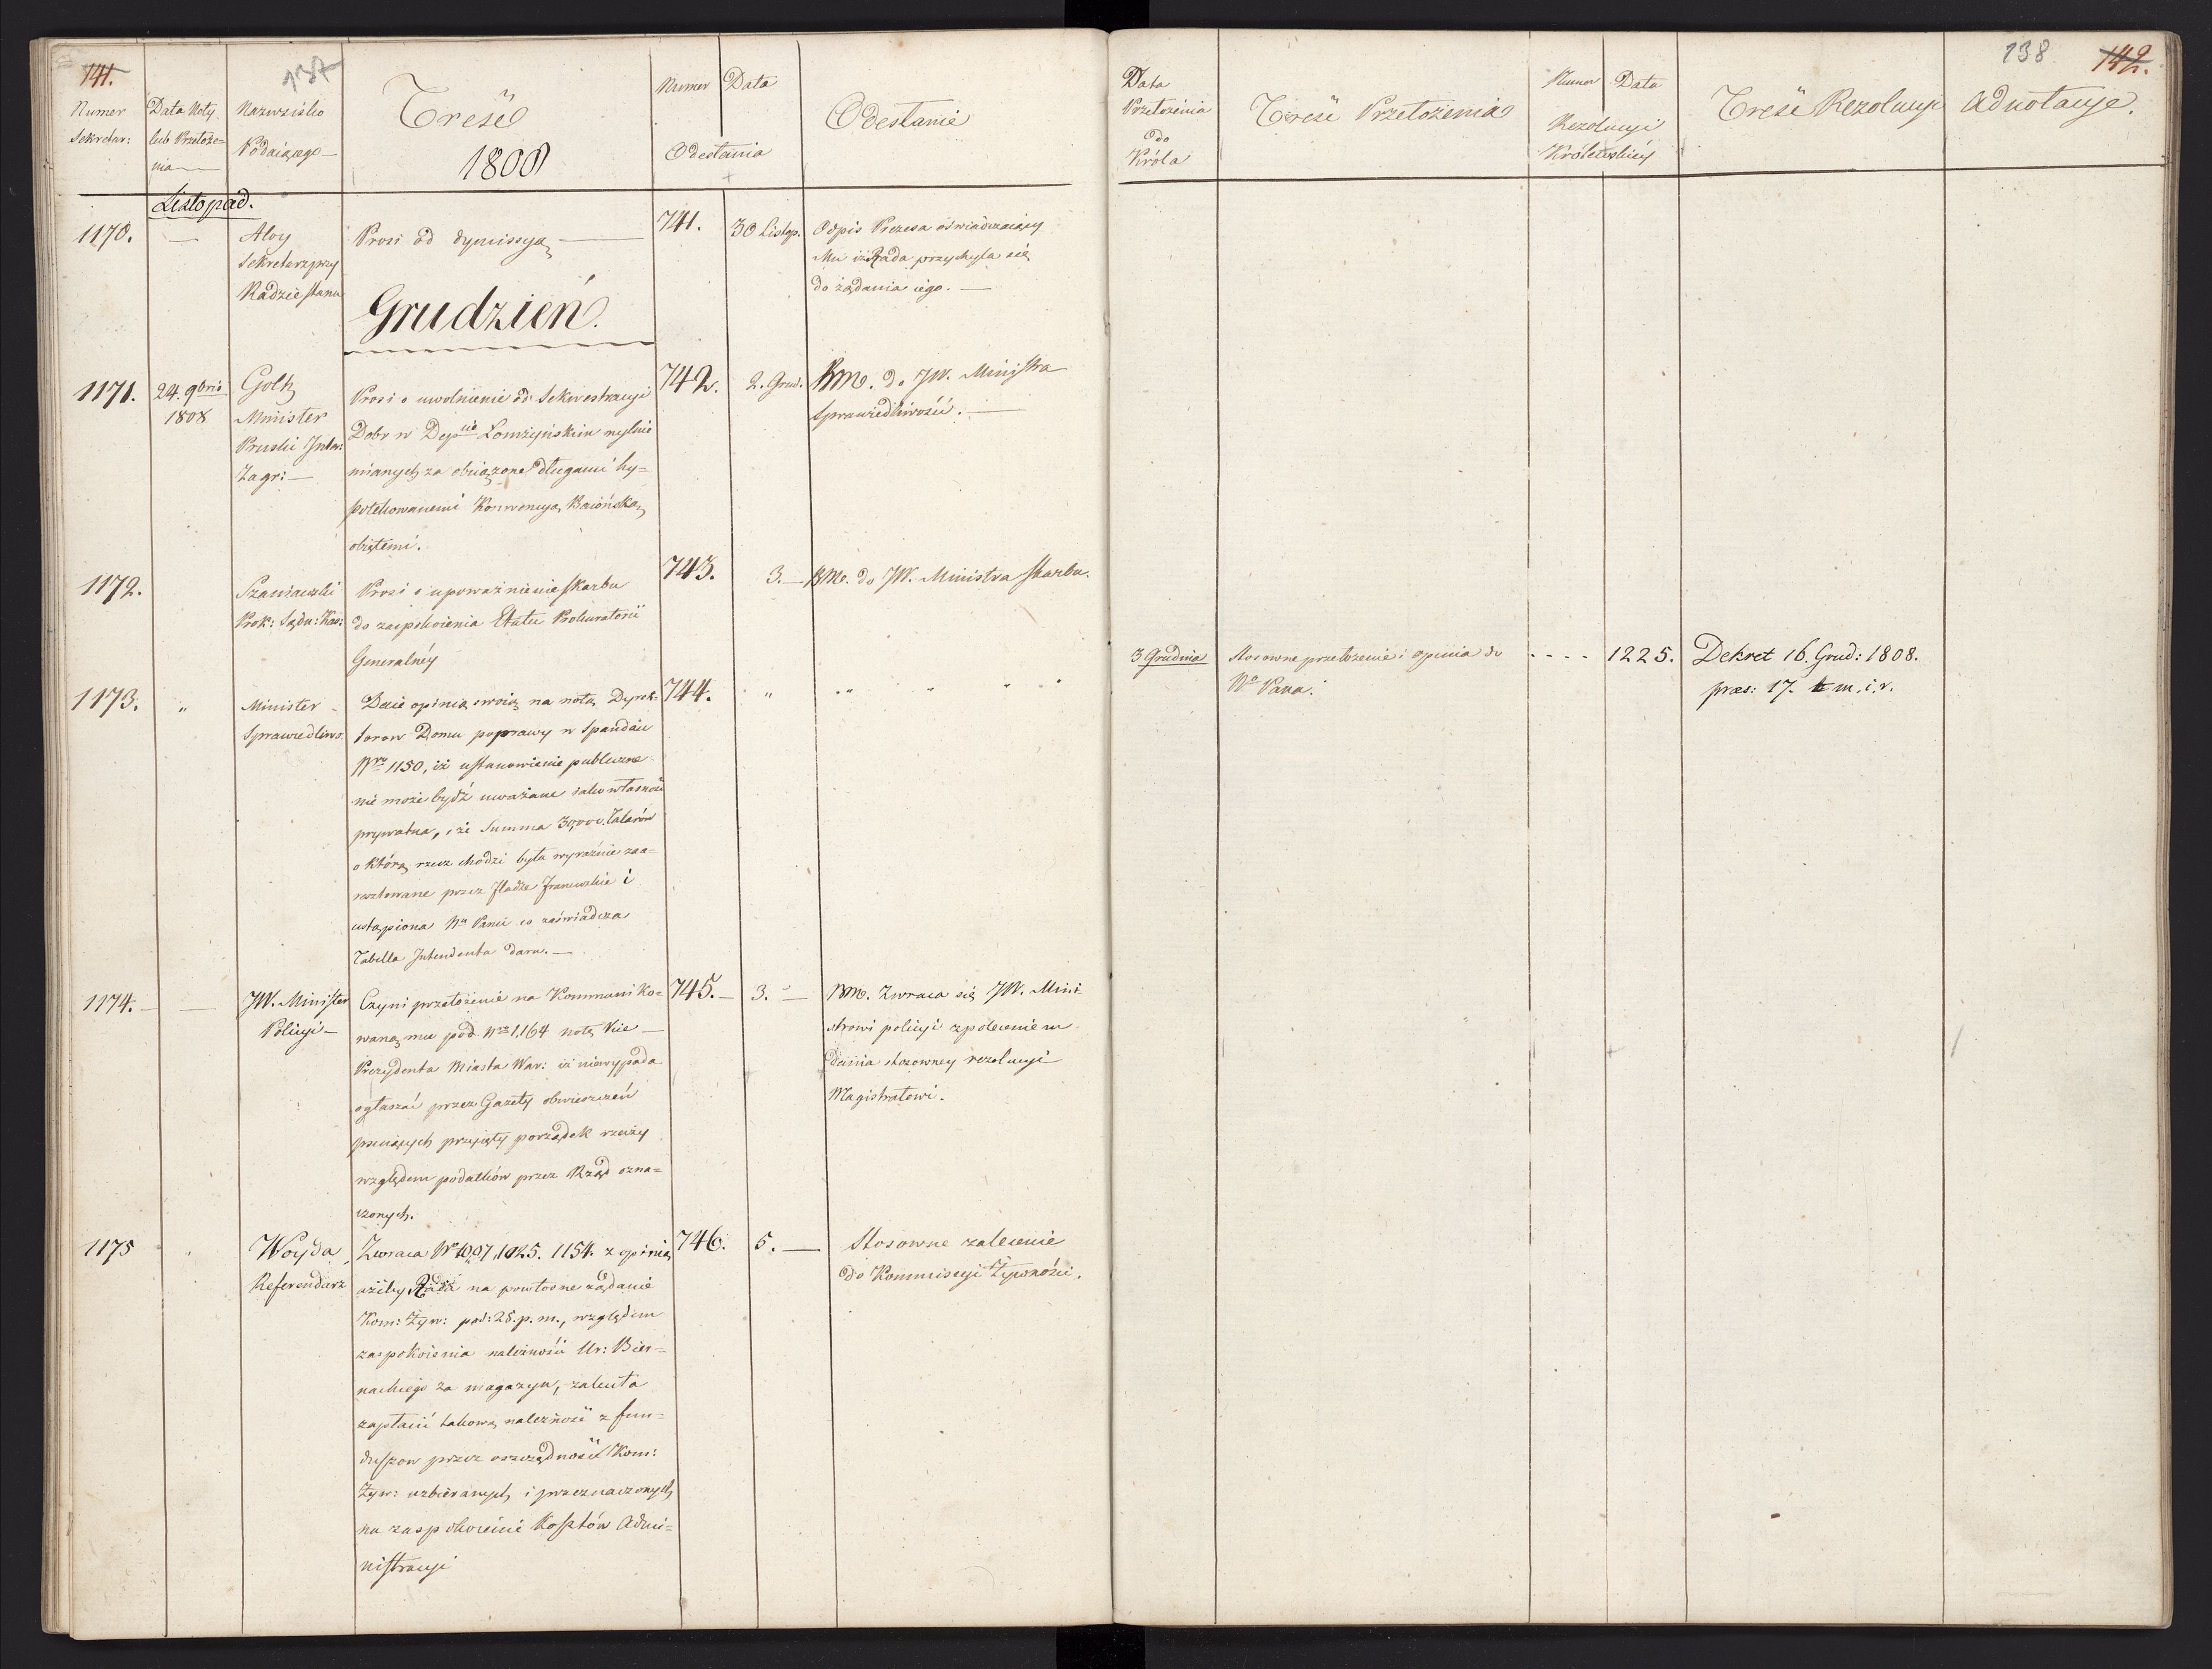 141.
137
Numer
Sekretar:
Data Noty
lub Przełoże=
nia
Nazwisko
Podaiącego
Treść
1808
Numer
Data
Odesłania
Odesłanie
Listopad.
1170.
Aloy
Sekretarz przy
Radzie Stanu
Prosi od dymissyą
741.
30 Listop.
Odpis Prezesa oświadczaiący
Mu iż Rada przychyla się
do żądania iego.
Grudzień.
1171.
24. 9bris
1808
Goltz
Minister
Pruski Inter:
Zagr:
Prosi o uwolnienie od Sekwestracyi
Dobr w Dep
Łomżyńskim mylnie
mianych za obciążone długami hy=
potekowanemi Konwencyą Baiońską
obiętemi.
742.
2. Grud.
BM. do JW. Ministra
Sprawiedliwości.
1172.
Szaniawski
Prok: Sądu: Kas:
Prosi o upoważnienie Skarbu
do zaspokoienia Etatu Prokuratorii
Generalnéy
743.
3.
BM. do JW. Ministra Skarbu.
1173.
"
Minister
Sprawiedliwo.
Daie opinią swoią na notę Dyrek=
torow Domu poprawy w Spandau
Nro 1150, iż ustanowienie publiczne
nie może bydź uważane iako własność
prywatna, i że Summa 30,000. Talarów
o którą rzecz chodzi była wyraźnie zaa=
resztowane przez Władze Francuzkie i
ustąpiona Na Panu co zaświadcza
Tabella Intendenta Daru.
744.
" " " " "
1174.
JW. Minister
Policyi
Czyni przełożenie na Kommuniko=
waną mu pod Nro 1,164 notę Vice
Prezydenta Miasta War: iż niewypada
ogłaszać przez Gazety obwieszczeń
psuiących przyięty porządek rzeczy
względem podatków przez Rząd ozna=
czonych.
745.
3.
BM. Zwraca się JW. Mini=
strowi policyi z poleceniem
dania stosowney rezolucyi
Magistratowi.
1175
Woyda
Referendarz
Zwraca Nr 10,07, 1025. 1154. z opinią
ażeby Rada na powtorne żądanie
Kom: Żyw: pod: 28. p. m., względem
zaspokoienia należności Ur: Bier=
nackiego za magazyn, zaleciła
zapłacić takową należność z fun=
duszow przez oszczędność Kom:
Żyw: uzbieranych i przeznaczonych
na zaspokoienie Kosztów Admi=
nistracyi
746.
5.
Stosowne zalecenie
do Kommissyi Żywności.
138
142.
Data
Przełożenia
do
Króla
Treść Przełożenia
Numer
Data
Rezolucyi
Królewskiéy
Treść Rezolucyi
Adnotacye.
3 Grudnia
Stosowne przełożenie i opinia do
Na Pana.
1225.
Dekret 16. Grud: 1808.
præs: 17. m. i. r.